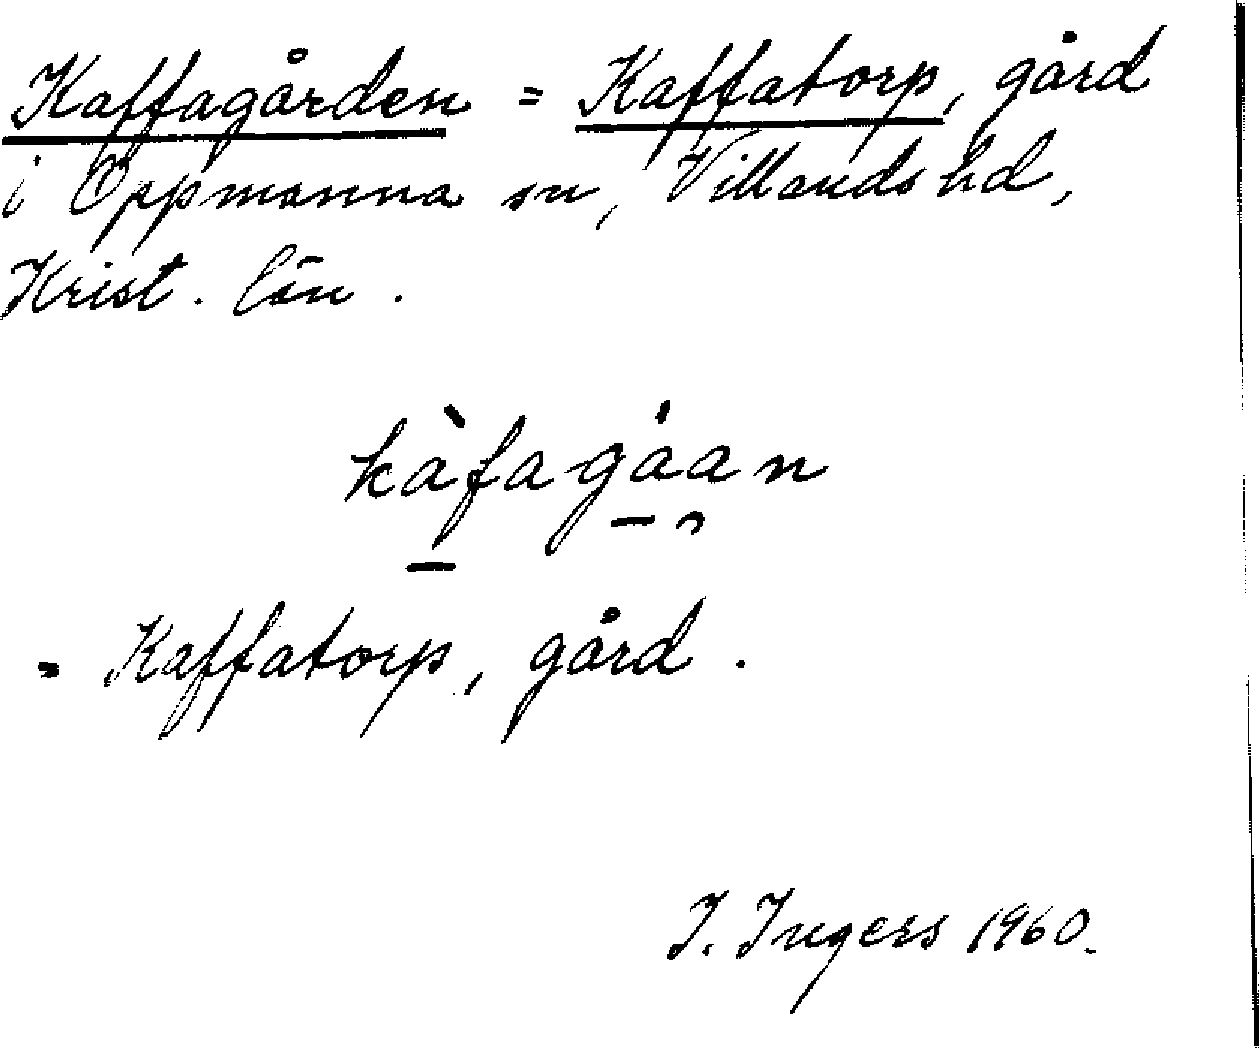 Kaffagården = Kaffatorp, gård
i Oppmanna sn, Villands hd,
Krist. län.
kàfagáan
= Kaffatorp, gård.
I. Ingers 1960.